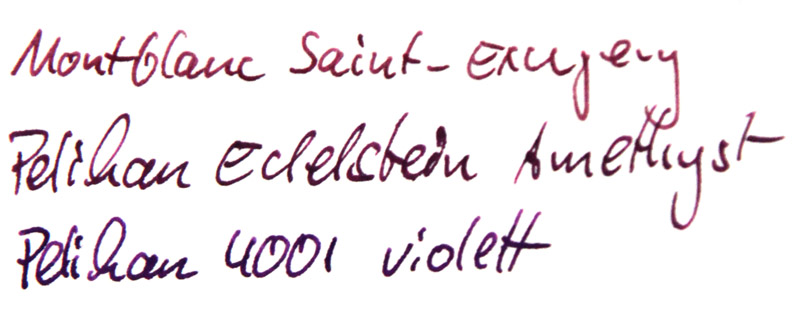 Montblanc Saint-Exupery
Pelikan Edelstein Amethyst
Pelikan 4001 violett